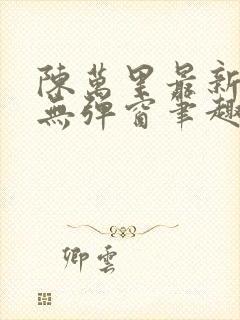 陳萬里最新
無彈窗筆趣
卿雲